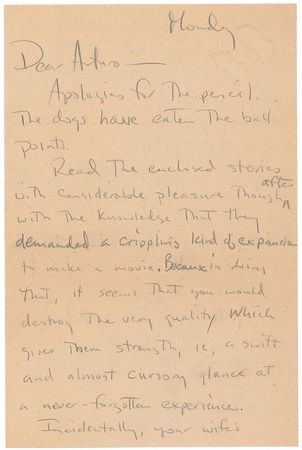 Monday
Dear Arthro—
Apologies for the pencil.
The dogs have eaten the ball
points.
Read the enclosed stories
with considerable pleasure though after
with the knowledge that they
demanded a crippling kind of expansion
to make a movie. Because in doing
that, it seems that you would
destroy the very quality which
gives them strength, ie, a swift
and almost cursory glance at
a never-forgotten experience.
Incidentally, your wife's